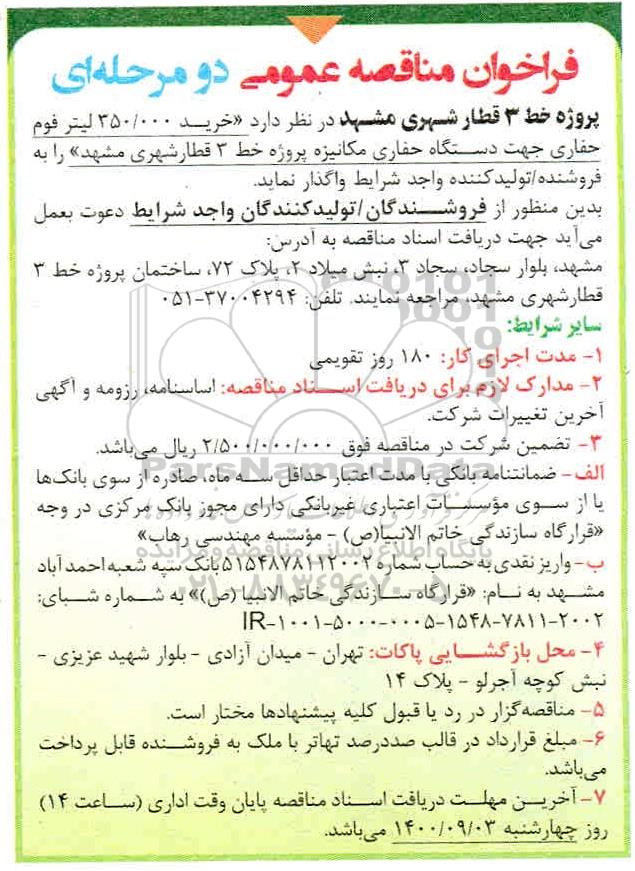 فراخوان مناقصه عمومی دو مرحله‌ای
پروژه خط ۳ قطار شهری مشهد در نظر دارد «خرید ۳۵۰/۰۰۰ لیتر فوم
حفاری جهت دستگاه حفاری مکانیزه پروژه خط ۳ قطارشهری مشهد» را به
فروشنده/تولیدکننده واجد شرایط واگذار نماید.
بدین منظور از فروشندگان/تولیدکنندگان واجد شرایط دعوت بعمل
می‌آید جهت دریافت اسناد مناقصه به آدرس:
مشهد، بلوار سجاد، سجاد ۳، نبش میلاد ۲، پلاک ۷۲، ساختمان پروژه خط ۳
قطارشهری مشهد، مراجعه نمایند. تلفن: ۳۷۰۰۴۲۹۴-۰۵۱
سایر شرایط:
۱- مدت اجرای کار: ۱۸۰ روز تقویمی
۲- مدارک لازم برای دریافت اسناد مناقصه: اساسنامه، رزومه و آگهی
آخرین تغییرات شرکت.
۳- تضمین شرکت در مناقصه فوق ۲/۵۰۰/۰۰۰/۰۰۰ ریال می‌باشد.
ParsNamadData
الف- ضمانتنامه بانکی با مدت اعتبار حداقل سه ماه، صادره از سوی بانک‌ها
یا از سوی مؤسسات اعتباری غیربانکی دارای مجوز بانک مرکزی در وجه
«قرارگاه سازندگی خاتم الانبیا(ص) - مؤسسه مهندسی رهاب»
پایگاه اطلاع رسانی مناقصه و مزایده
ب- واریز نقدی به حساب شماره ۵۱۵۴۸۷۸۱۱۲۰۰۲ بانک سپه شعبه احمد آباد
مشهد به نام: «قرارگاه سازندگی خاتم الانبیا (ص)» به شماره شبای:
IR-۱۰۰۱-۵۰۰۰-۰۰۰۵-۱۵۴۸-۷۸۱۱-۲۰۰۲
۴- محل بازگشایی پاکات: تهران - میدان آزادی - بلوار شهید عزیزی -
نبش کوچه آجرلو - پلاک ۱۴
۵- مناقصه‌گزار در رد یا قبول کلیه پیشنهادها مختار است.
۶- مبلغ قرارداد در قالب صددرصد تهاتر با ملک به فروشنده قابل پرداخت
می‌باشد.
۷- آخرین مهلت دریافت اسناد مناقصه پایان وقت اداری (ساعت ۱۴)
روز چهارشنبه ۱۴۰۰/۰۹/۰۳ می‌باشد.